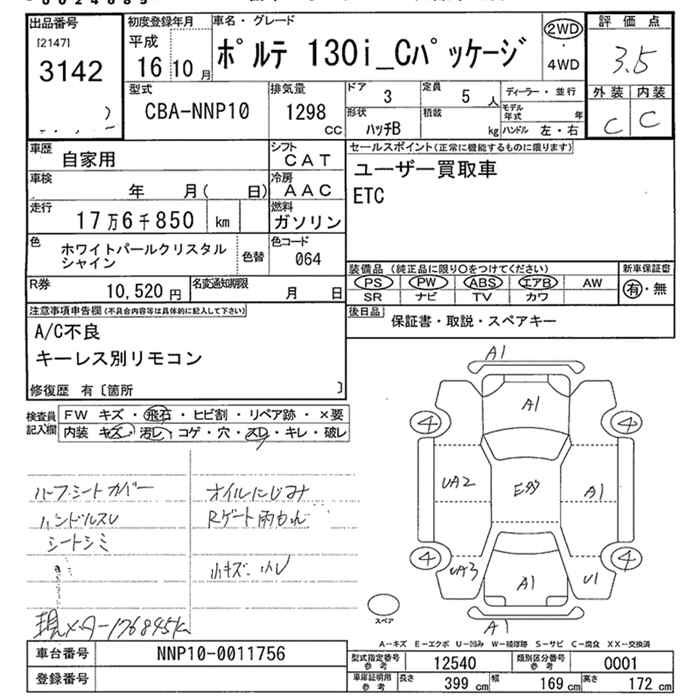 出品番号
[2147]
3142
初度登録年月
平成
16 10月
車名・グレード
ポルテ 130i_Cパッケージ
2WD
・
4WD
評価点
3.5
外装 内装
C C
型式
CBA-NNP10
排気量
1298
CC
ドア
3
定員
5 人
ディーラー・並行
形状
ハッチB
積載
kg
モデル年式
年
ハンドル 左・右
車歴
自家用
シフト
CAT
車検
年 月( 日)
冷房
AAC
走行
17万6千850 km
燃料
ガソリン
色
ホワイトパールクリスタル
シャイン
色替
色コード
064
R券
10,520 円
名変通知期限
月 日
セールスポイント(正常に機能するものに限ります)
ユーザー買取車
ETC
装備品 (純正品に限り○をつけてください)
新車保証書
PS PW ABS エアB AW
SR ナビ TV カワ
有・無
後日品
保証書・取説・スペアキー
注意事項申告欄(不具合内容等は具体的に記入して下さい)
A/C不良
キーレス別リモコン
修復歴 有〔箇所 〕
検査員
記入欄
FW キズ・飛石・ヒビ割・リペア跡・×要
内装 キズ・汚レ・コゲ・穴・スレ・キレ・破レ
ハーフシートカバー
ハンドルスレ
シートシミ
オイルにじみ
Rゲート雨もれ
小キズ・小U
現メーター176845km
A1
A1
4
4
UA2
E99
A1
4
4
UA3
A1
U1
A1
スペア
A-キズ E-エクボ U-凹み W-補修跡 S-サビ C-腐食 XX-交換済
車台番号
NNP10-0011756
登録番号
型式指定番号
参考
12540
類別区分番号
参考
0001
車庫証明用
参考
長さ 399 cm
幅 169 cm
高さ 172 cm